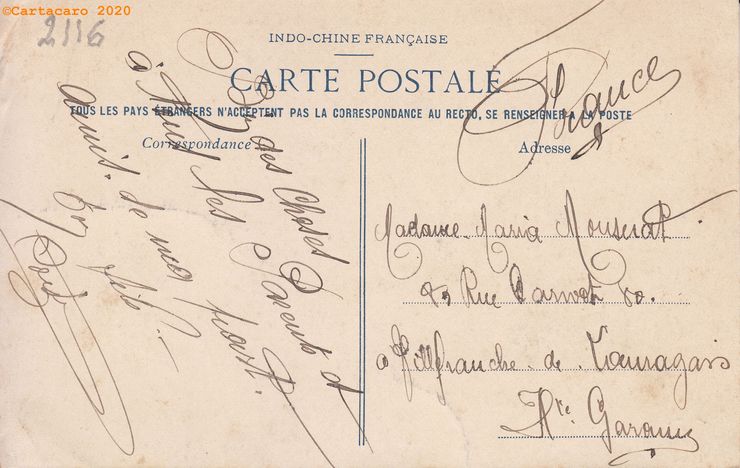 ©Cartacaro 2020
2116
INDO-CHINE FRANÇAISE
CARTE POSTALE
TOUS LES PAYS ÉTRANGERS N'ACCEPTENT PAS LA CORRESPONDANCE AU RECTO, SE RENSEIGNER A LA POSTE
Correspondance
Adresse
France
des Choses
à tous les Parents et
amis. de ma part.
Ton fils.
Madame Maria Mouserat
Rue Carnot
à Villfranche. de. Lauragais
Hte Garonne